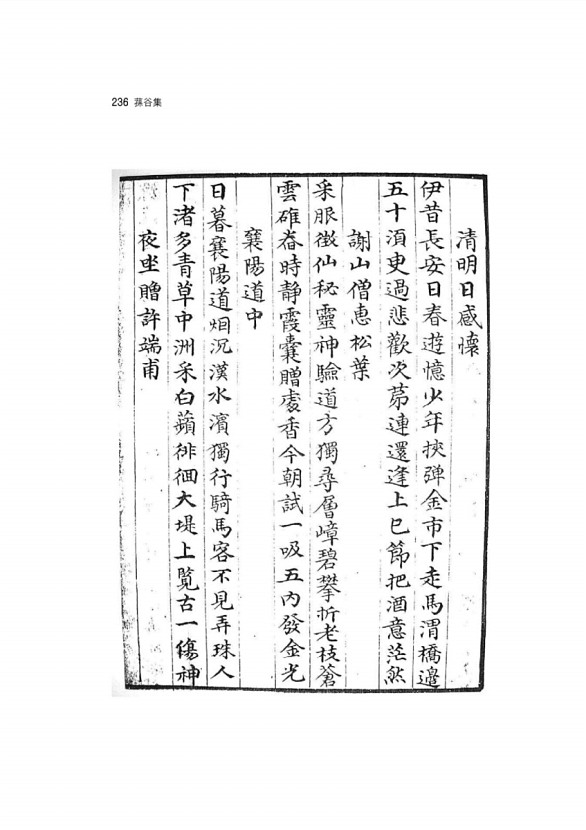 236 蓀谷集
清明日感懷
伊昔長安日春遊憶少年挾彈金市下走馬渭橋邉
五十須臾過悲歡次苐連還逢上巳節把酒意茫然
謝山僧惠松葉
采服徴仙秘靈神驗道方獨尋層嶂碧攀折老枝蒼
雲碓舂時静霞囊贈處香今朝試一吸五內發金光
襄陽道中
日暮襄陽道烟沉漢水濱獨行騎馬客不見弄珠人
下渚多青草中洲采白蘋徘徊大堤上覧古一傷神
夜坐贈許端甫